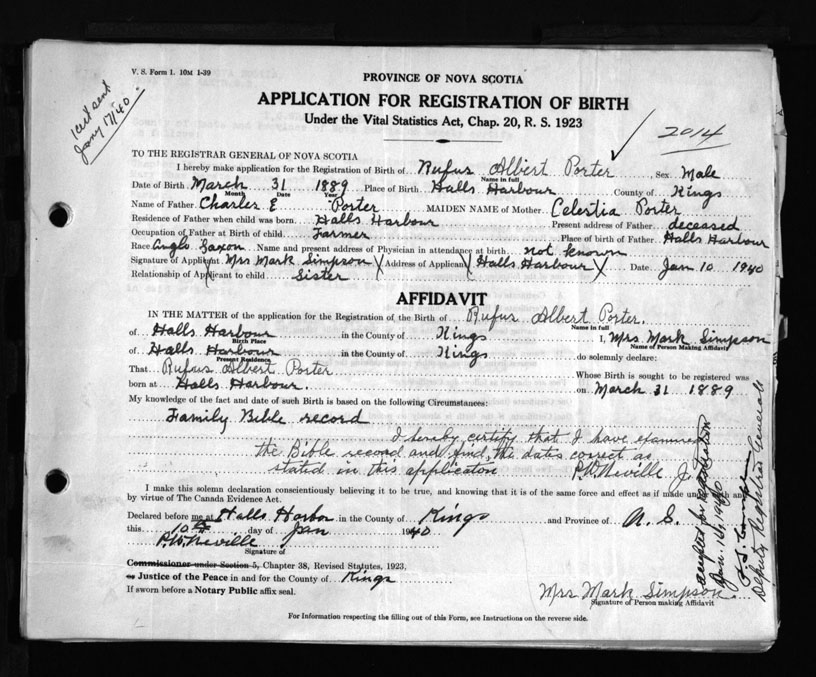 V. S. Form 1. 10M 1-39
PROVINCE OF NOVA SCOTIA
Cert sent
Jany 17/40
APPLICATION FOR REGISTRATION OF BIRTH
Under the Vital Statistics Act, Chap. 20, R. S. 1923
2014
TO THE REGISTRAR GENERAL OF NOVA SCOTIA
I hereby make application for the Registration of Birth of Rufus Albert Porter Sex Male
Name in full
Date of Birth March 31 1889 Place of Birth Halls Harbour County of Kings
Month Date Year
Name of Father Charles E Porter MAIDEN NAME of Mother Celestia Porter
Residence of Father when child was born Halls Harbour Present address of Father deceased
Occupation of Father at Birth of child Farmer Place of birth of Father Halls Harbour
Race Anglo Saxon Name and present address of Physician in attendance at birth not known
Signature of Applicant Mrs Mark Simpson Address of Applicant Halls Harbour Date Jan 10 1940
Relationship of Applicant to child Sister
AFFIDAVIT
IN THE MATTER of the application for the Registration of the Birth of Rufus Albert Porter
Name in full
of Halls Harbour in the County of Kings I, Mrs Mark Simpson
Birth Place Name of Person Making Affidavit
of Halls Harbour in the County of Kings do solemnly declare:
Present Residence
That Rufus Albert Porter Whose Birth is sought to be registered was
born at Halls Harbour. on March 31 1889
My knowledge of the fact and date of such Birth is based on the following Circumstances:
Family Bible record
I hereby certify that I have examined
the Bible record and find the dates correct as
stated in this application P.W. Neville J.
I make this solemn declaration conscientiously believing it to be true, and knowing that it is of the same force and effect as if made under oath and
by virtue of The Canada Evidence Act.
Declared before me at Halls Harbor in the County of Kings and Province of N. S.
this 10th day of Jan 1940
P.W. Neville
Signature of
Commissioner under Section 5, Chapter 38, Revised Statutes, 1923,
or Justice of the Peace in and for the County of Kings
If sworn before a Notary Public affix seal.
Mrs Mark Simpson
Signature of Person making Affidavit
For Information respecting the filling out of this Form, see Instructions on the reverse side.
accepted for registration
Jan. 16, 1940
Deputy Registrar General